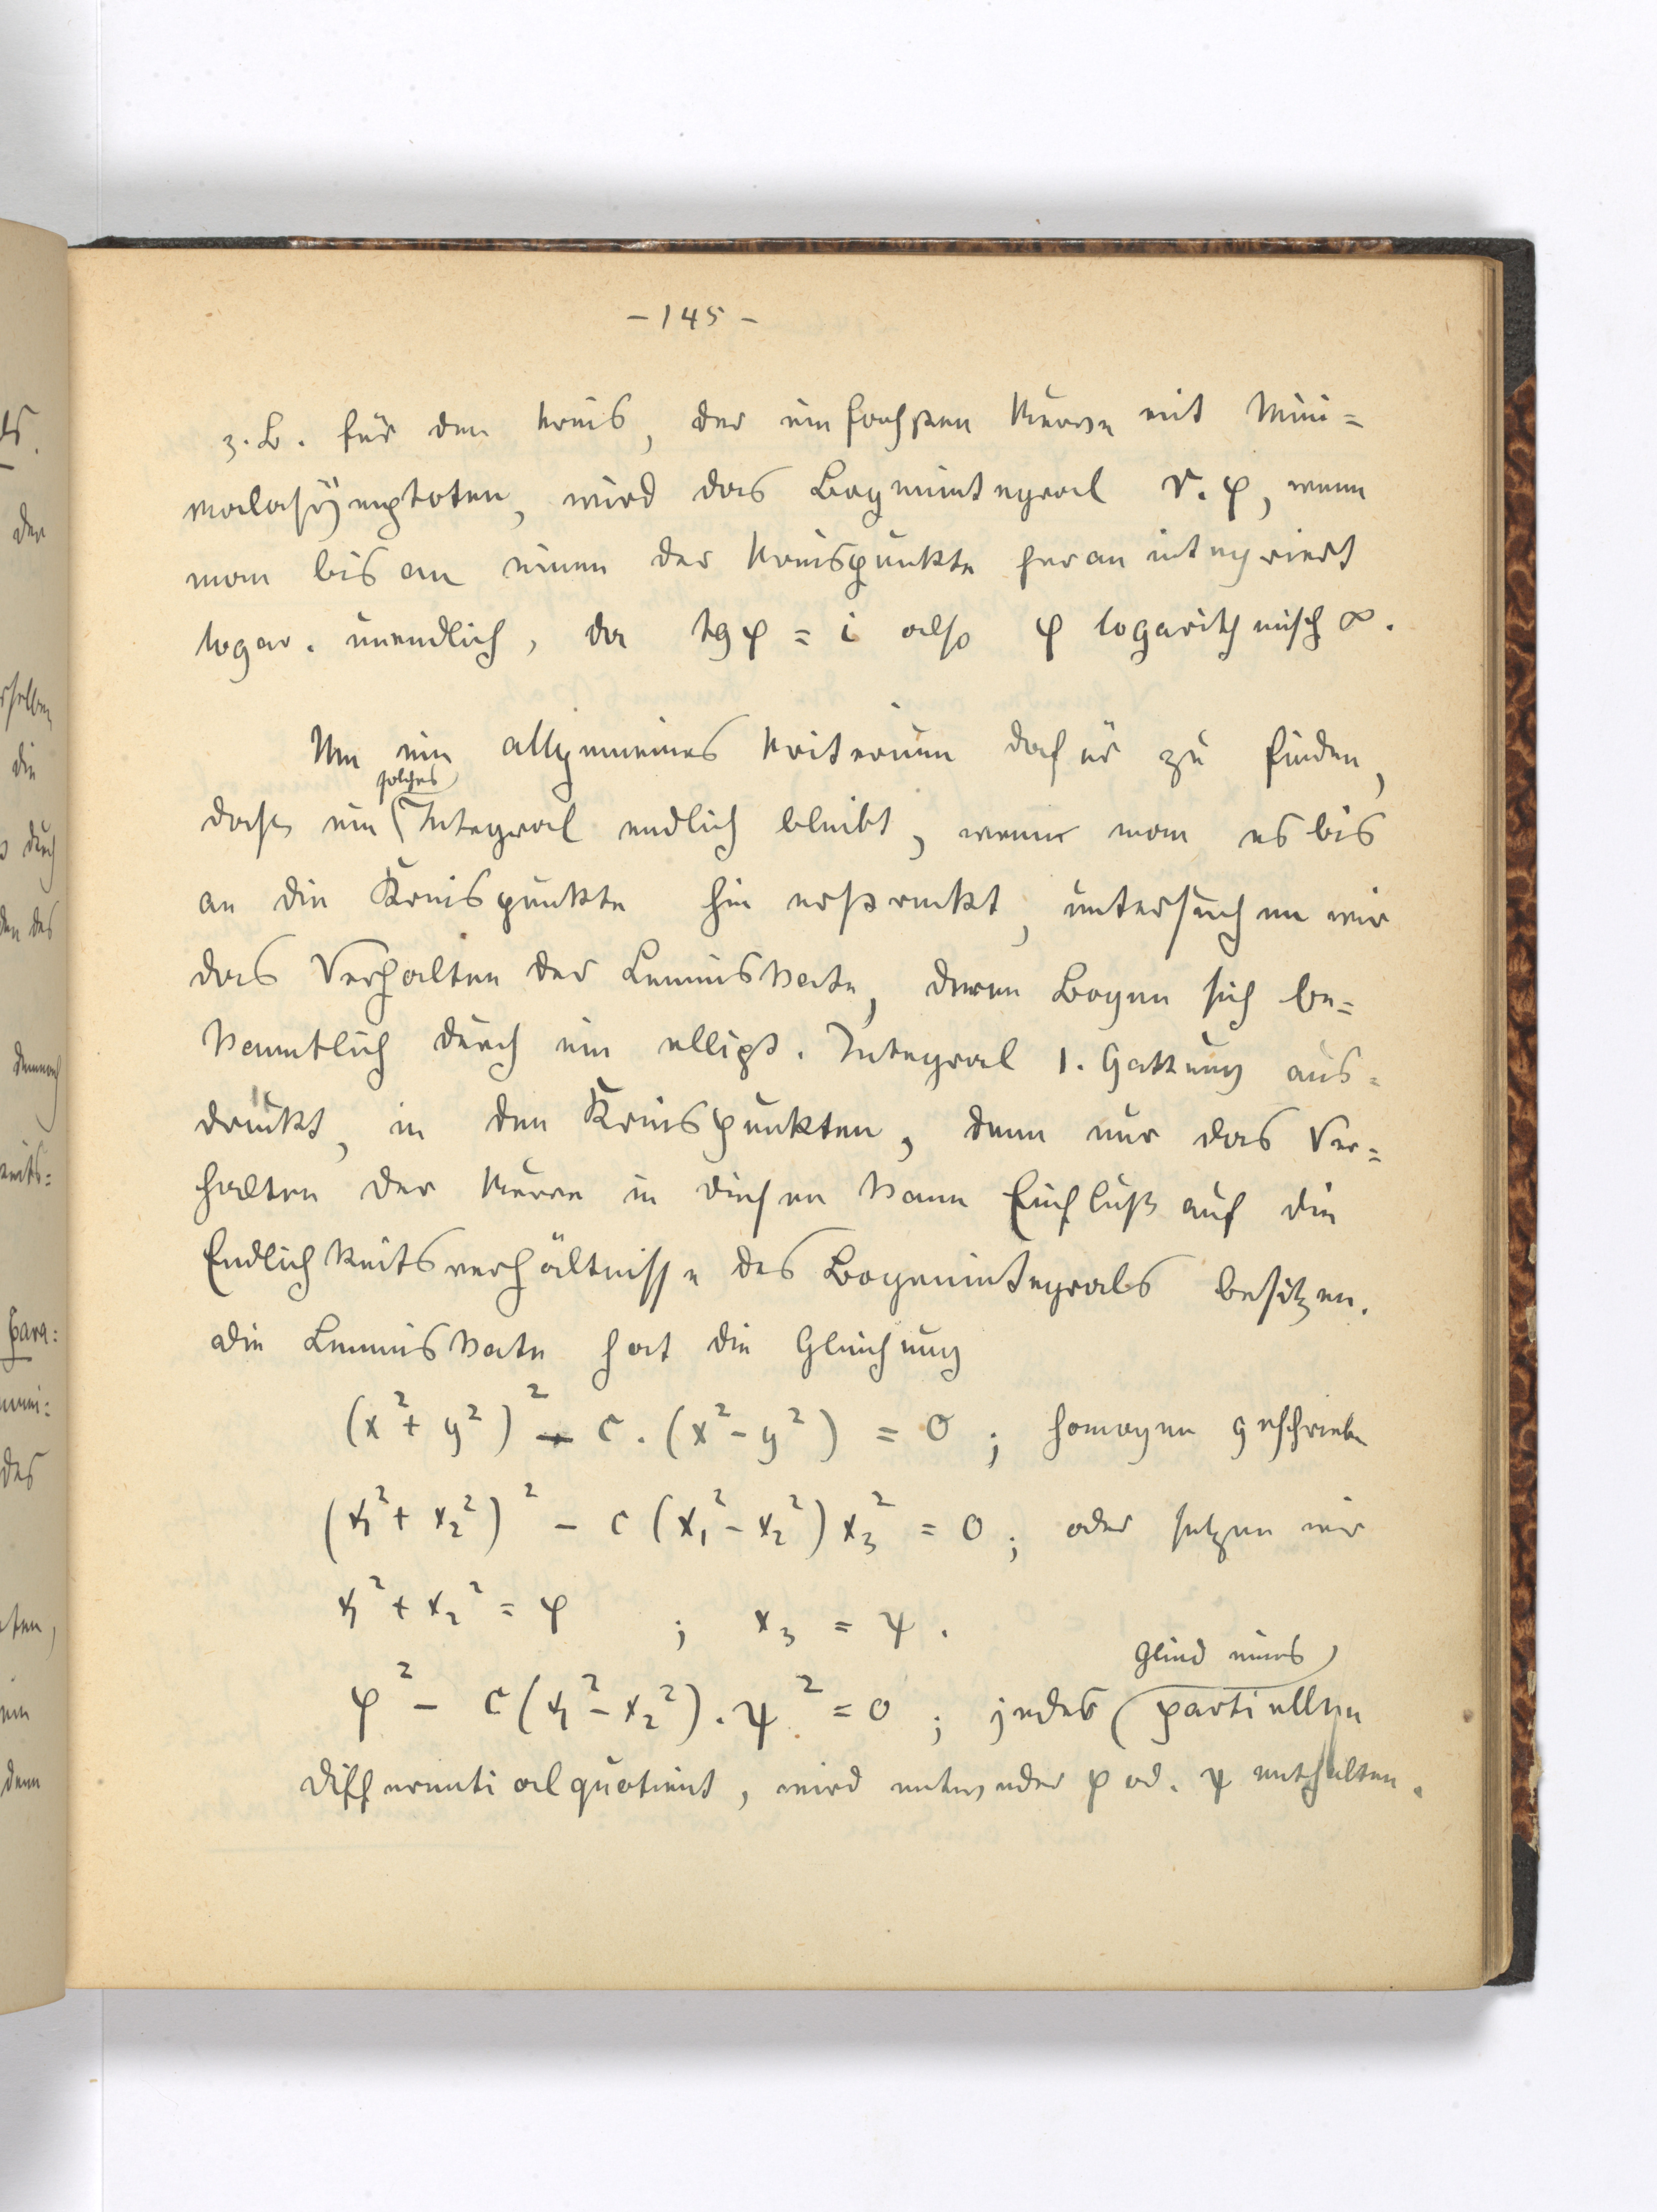 - 145 -
z. B. für den Kreis, der einfachsten Kurve mit Mini=
malasymptoten, wird das Bogenintegral r. φ, wenn
man bis an einen der Kreispunkte heran integriert
logar. unendlich, da tg φ = i also φ logarithmisch ∞.
Um ein allgemeines Kriterium dafür zu finden,
solches
dass ein Integral endlich bleibt, wenn man es bis
an die Kreispunkte hin erstreckt, untersuchen wir
das Verhalten der Lemniskate, deren Bogen sich be=
kanntlich durch ein ellipt. Integral 1. Gattung aus=
drückt, in den Kreispunkten, denn nur das Ver=
halten der Kurve in diesen kann Einfluß auf die
Endlichkeitsverhältnisse des Bogenintegrals besitzen.
Die Lemniskate hat die Gleichung
(x² + y²)² - c. (x² - y²) = 0 ; homogen geschrieben
(x₁² + x₂²)² - c (x₁² - x₂²) x₃² = 0 ; oder setzen wir
x₁² + x₂² = φ ; x₃ = ψ.
Glied eines
φ² - c (x₁² - x₂²). ψ² = 0 ; jedes partiellen
Differentialquotient, wird entweder φ od. ψ enthalten.
ds.
der
die
durch
den des
demnach
Para=
des
denn